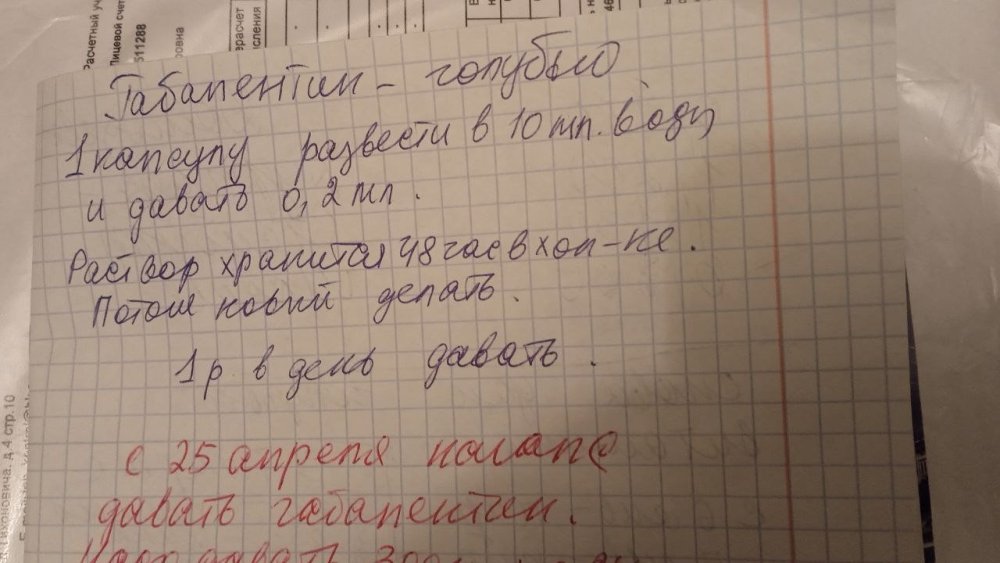 Расчетный уч
Лицевой счет
511288
ровна
ерасчет
исления
Габапентин - голубью
1 капсулу развести в 10 мл. воды
и давать 0,2 мл.
Раствор хранится 48 час в хол-ке.
Потом новый делать.
1 р в день давать.
с 25 апреля начале
давать габапентин.
давать 300
д.4 стр.10